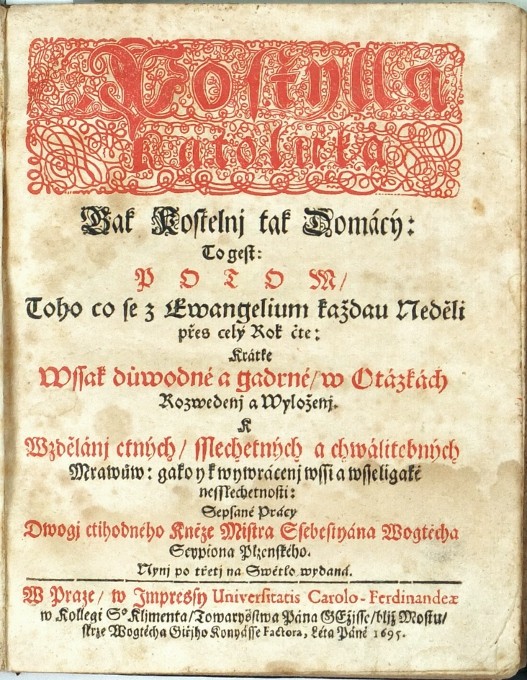 Postylla
katolická
Yak Kostelnj tak Domácý:
To gest:
POTOM/
Toho co se z Ewangelium každau Neděli
přes celý Rok čte:
Krátke
Wssak důwodné a gadrné/ w Otázkách
Rozwedenj a Wyloženj.
K
Wzdělánj ctných/ sslechetných a chwálitebných
Mrawůw: gako y k wywrácenj wssi a wsseligaké
nesslechetnosti:
Sepsané Prácy
Dwogj ctihodného Kněze Mistra Ssebestyána Wogtěcha
Scypiona Plzenského.
Nynj po třetj na Swětlo wydaná.
W Praze/ w Jmpressy Universitatis Carolo-Ferdinandeæ
w Kollegi Sº Kljmenta/ Towaryšstwa Pána GEžisse/ bljž Mostu/
skrze Wogtěcha Giřjho Konyásse Factora, Léta Páně 1695.